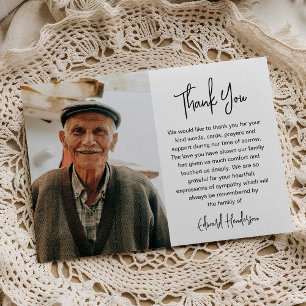 Thank You
We would like to thank you for your
kind words, cards, prayers and
support during our time of sorrow.
The love you have shown our family
has given us much comfort and
touched us deeply. We are so
grateful for your heartfelt
expressions of sympathy which will
always be remembered by
the family of
Edward Henderson